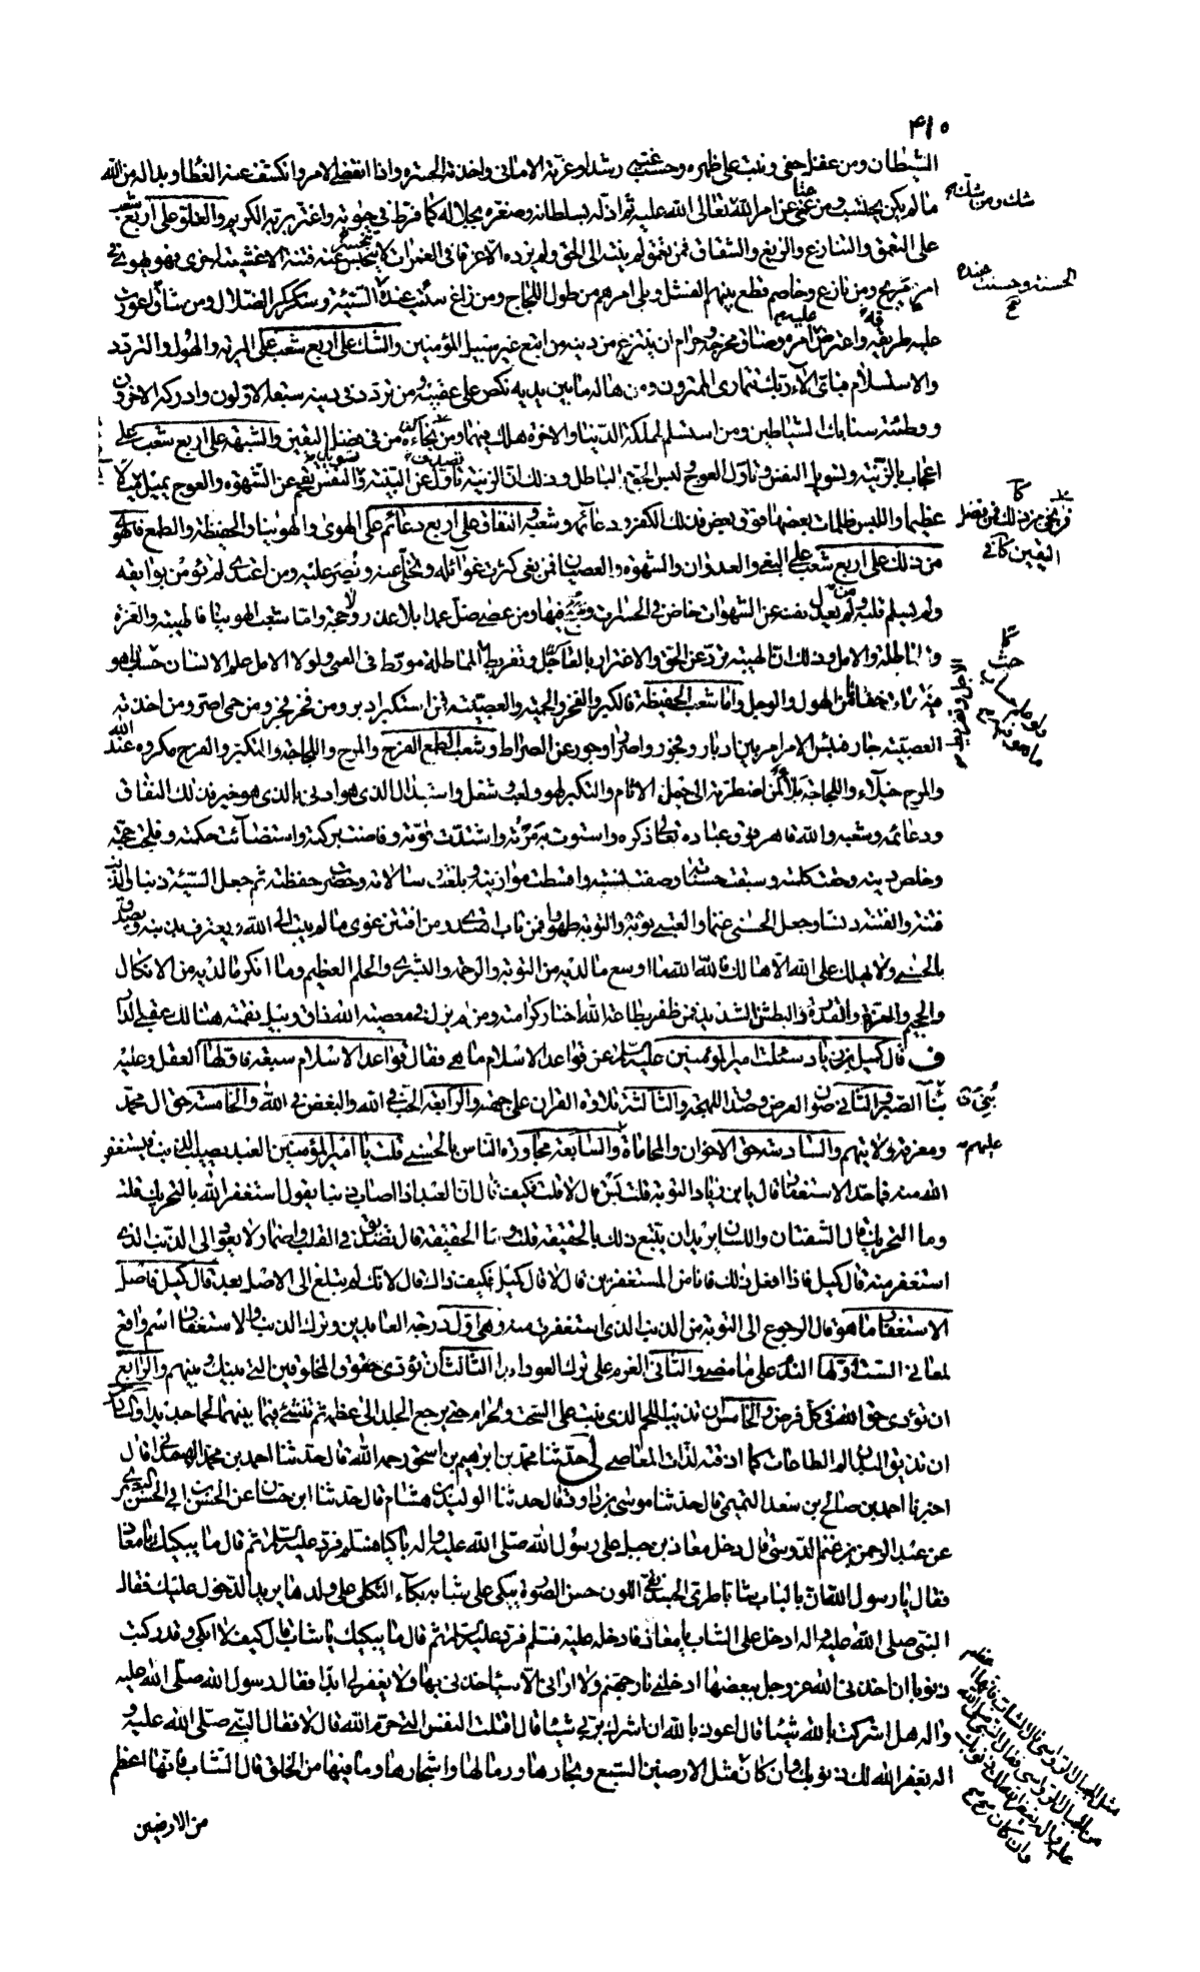 ٤١٥
الشيطان ومن غفل جنى ونبت على ظهره وحسب غيه رشدا وغرته الامانى واخذته الحسرة واذا انقضى الامر وانكشف عنه الغطا وبدا له من الله
ما لم يكن يحتسب ومن عتى عن امر الله تعالى الله عليه ثم اذله بسلطانه وصغره بجلاله كما فرط فى حيوته واغتر بربه الكريم والغلو على اربع شعب
على التعمق والتنازع والزيغ والشقاق فمن تعمق لم ينب الى الحق ولم يزده الا غرقا فى الغمرات لا تنحسر عنه فتنة الا غشيته اخرى فهو يهوى فى
امر مريج ومن نازع وخاصم قطع بينهم الفشل وبلى امرهم من طول اللجاج ومن زاغ سائت عنده السيئة وسكر سكر الضلال ومن شاق اعورت
عليه طرقه واعترض امره وضاق مخرجه وحرام ان ينزع من دينه من اتبع غير سبيل المؤمنين والشك على اربع شعب على المرية والهول والتردد
والاستسلام فباى الاء ربك تتمارى الممترون ومن هاله ما بين يديه نكص على عقبيه ومن تردد فى دينه سبقه الاولون وادركه الاخرون
ووطئته سنابك الشياطين ومن استسلم لهلكة الدنيا والاخرة هلك فيهما ومن نجا من فى فضل اليقين والشبهة على اربع شعب على
اعجاب بالزينة وتسويل النفس وتأول العوج ولبس الحق بالباطل وذلك ان الزينة تأول عن البينة والنفس تقحم عن الشهوة والعوج يميل ميلا
عظيما واللبس ظلمات بعضها فوق بعض فذلك الكفر ودعائمه وشعبه والنفاق على اربع دعائم على الهوى والهوينا والحفيظة والطمع فالهوى
من ذلك على اربع شعب على البغى والعدوان والشهوة والعصيان فمن بغى كثرت غوائله وتخلى عنه ونصر عليه ومن اعتدى لم تؤمن بوائقه
ولم يسلم قلبه ولم يعدل نفسه عن الشهوات خاض فى الحسرات وفيها ومن عصى ضل عمدا بلا عذر ولا حجة واما شعب الهوينا فالهيبة والغرة
والمماطلة والامل وذلك ان الهيبة ترد عن الحق والاغترار بالعاجل وتفريط المماطلة مورط فى العمى ولولا الامل علم الانسان حساب ما هو
فيه خفاتا من الهول والوجل واما شعب الحفيظة فالكبر والفخر والحمية والعصبية فمن استكبر ادبر ومن فخر فجر ومن حمى اصر ومن اخذته
العصبية جار فبئس الامر امر بين ادبار وفجور واصرار وجور عن الصراط وشعب الطمع الفرح والمرح واللجاجة والتكبر والفرح مكروه عند الله
والمرح خيلاء واللجاجة بلاء لمن اضطرته الى حمل الاثام والتكبر لهو ولعب وشغل واستبدال الذى هو ادنى بالذى هو خير فذلك النفاق
ودعائمه وشعبه والله قاهر فوق عباده تعالى ذكره واستوت به مرته واشتدت قوته وفاضت بركته واستضائت حكمته وفلجت حجته
وخلص دينه وحقت كلمته وسبقت حسناته وصفت نسبته واقسطت موازينه وبلغت رسالاته وحضرت حفظته ثم جعل السيئة ذنبا والذنب
فتنة والفتنة دنسا وجعل الحسنى غنما والعتبى توبة والتوبة طهورا فمن تاب اهتدى ومن افتتن غوى ما لم يتب الى الله ويعترف بذنبه ويصدق
بالحسنى ولا يهلك على الله الا هالك فالله الله ما اوسع ما لديه من التوبة والرحمة والبشرى والحلم العظيم وما انكر ما لديه من الانكال
والجحيم والعزة والقدرة والبطش الشديد فمن ظفر بطاعة الله اختار كرامته ومن لم يزل فى معصية الله ذاق وبيل نقمته هنالك عقبى الدار
ف قال كميل بن زياد سئلت امير المؤمنين عليه السلام عن قواعد الاسلام ما هى فقال قواعد الاسلام سبعة فاولها العقل وعليه
بنآ الصبر والثانى صون العرض وصدق اللهجة والثالثة تلاوة القران على جهته والرابعة الحب فى الله والبغض فى الله والخامسة حق ال محمد
ومعرفة ولايتهم والسادسة حق الاخوان والمحاماة والسابعة مجاورة الناس بالحسنى قلت يا امير المؤمنين العبد يصيب الذنب فيستغفر
الله منه فما حد الاستغفار قال يا بن زياد التوبة قلت بس قال لا قلت فكيف قال ان العبد اذا اصاب ذنبا يقول استغفر الله بالتحريك قلت
وما التحريك قال الشفتان واللسان يريد ان يتبع ذلك بالحقيقة قلت وما الحقيقة قال تصديق فى القلب واضمار لا يعود الى الذنب الذى
استغفر منه قال كميل فاذا فعل ذلك فانا من المستغفرين قال لا قال كميل فكيف ذاك قال لانك لم تبلغ الى الاصل بعد قال كميل فاصل
الاستغفار ما هو قال الرجوع الى التوبة من الذنب الذى استغفرت منه وهى اول درجة العابدين وترك الذنب والاستغفار اسم واقع
لمعانى الست اولها الندم على ما مضى والثانى العزم على ترك العود ابدا الثالث ان تؤدى حقوق المخلوقين التى بينك وبينهم والرابع
ان تؤدى حق الله فى كل فرض والخامس ان تذيب اللحم الذى نبت على السحت والحرام حتى يرجع الجلد الى عظمه ثم تنشئ فيما بينهما لحما جديدا والسادس
ان تذيق البدن الم الطاعات كما اذقته لذات المعاصى لى حدثنا محمد بن ابرهيم بن اسحق رحمه الله قال حدثنا احمد بن محمد الهمدانى قال
اخبرنا احمد بن صالح بن سعد التميمى قال حدثنا موسى بن داود قال حدثنا الوليد بن هشام قال حدثنا ابن حسان عن الحسن بن ابى الحسن البصرى
عن عبد الرحمن بن غنم الدوسى قال دخل معاذ بن جبل على رسول الله صلى الله عليه واله باكيا فسلم فرد عليه السلام ثم قال ما يبكيك يا معاذ
فقال يا رسول الله ان بالباب شابا طرى الجسد نقى اللون حسن الصورة يبكى على شبابه بكاء الثكلى على ولدها يريد الدخول عليك فقال
النبى صلى الله عليه واله ادخل على الشاب يا معاذ فادخله عليه فسلم فرد عليه السلام ثم قال ما يبكيك يا شاب قال كيف لا ابكى وقد ركبت
ذنوبا ان اخذنى الله عز وجل ببعضها ادخلنى نار جهنم ولا ارانى الا سيأخذنى بها ولا يغفر لى ابدا فقال رسول الله صلى الله عليه
واله هل اشركت بالله شيئا قال اعوذ بالله ان اشرك بربى شيئا قال اقتلت النفس التى حرم الله قال لا فقال النبى صلى الله عليه و
اله يغفر الله لك ذنوبك وان كانت مثل الارضين السبع وبحارها ورمالها واشجارها وما فيها من الخلق قال الشاب فانها اعظم
من الارضين
شك ومن شك
الحسنة وحسنت عنده
اليقين كافى
عليهم
مثل الجبال الرواسى قال الشاب فانها اعظم
من الجبال الرواسى فقال النبى صلى الله
عليه واله يغفر الله لك ذنوبك
وان كانت